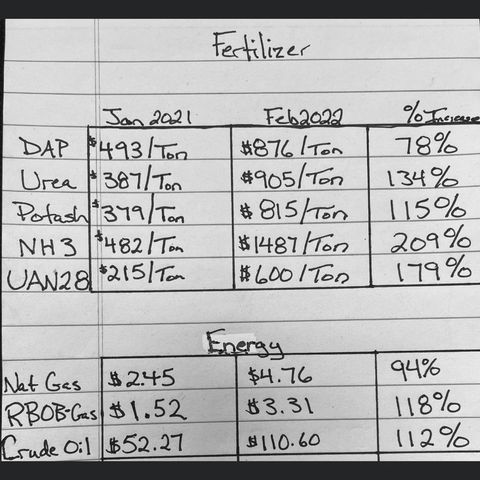 Fertilizer
Jan 2021 Feb 2022 % Increase
DAP $493/Ton $876/Ton 78%
Urea $387/Ton $905/Ton 134%
Potash $379/Ton $815/Ton 115%
NH3 $482/Ton $1487/Ton 209%
UAN28 $215/Ton $600/Ton 179%
Energy
Nat Gas $2.45 $4.76 94%
RBOB-Gas $1.52 $3.31 118%
Crude Oil $52.27 $110.60 112%